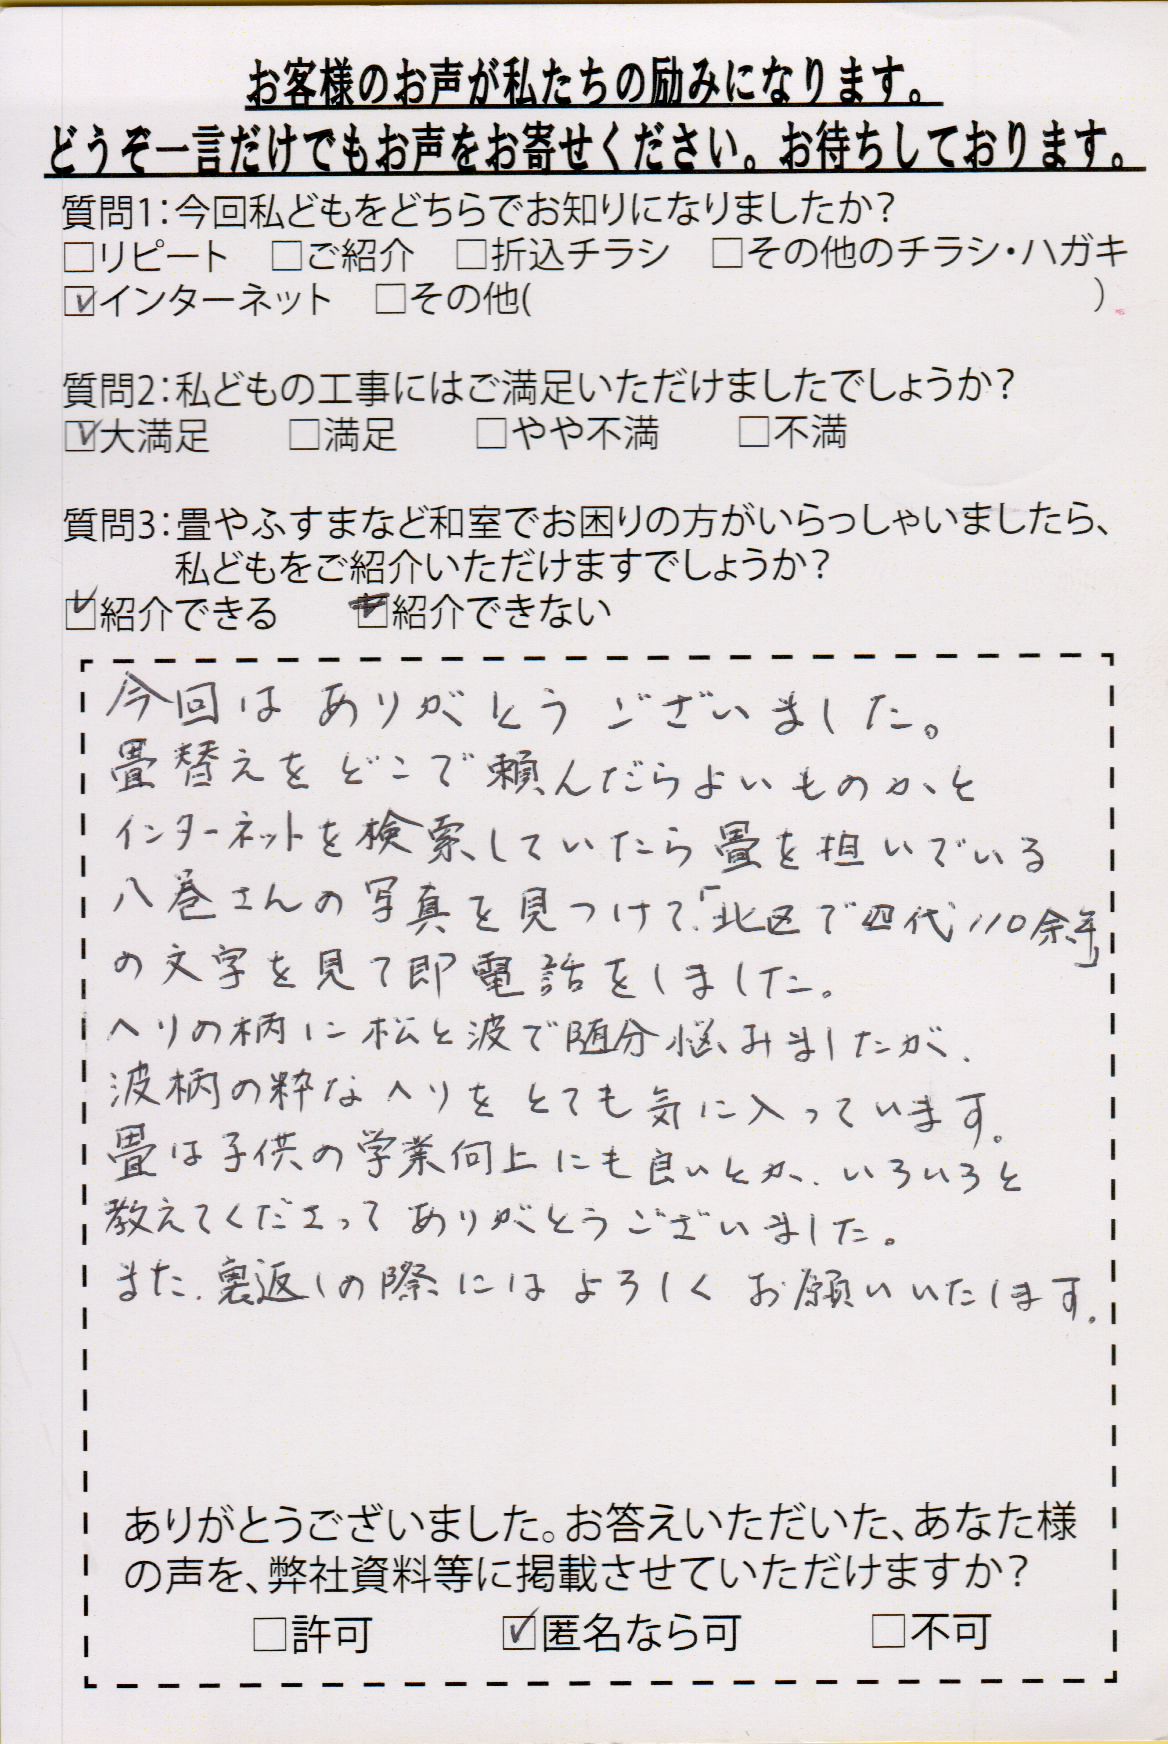 お客様のお声が私たちの励みになります。
どうぞ一言だけでもお声をお寄せください。お待ちしております。
質問1：今回私どもをどちらでお知りになりましたか？
□リピート　□ご紹介　□折込チラシ　□その他のチラシ・ハガキ
☑インターネット　□その他(　　　　)
質問2：私どもの工事にはご満足いただけましたでしょうか？
☑大満足　□満足　□やや不満　□不満
質問3：畳やふすまなど和室でお困りの方がいらっしゃいましたら、
私どもをご紹介いただけますでしょうか？
☑紹介できる　□紹介できない
今回は ありがとう ございました。
畳替えを どこで 頼んだらよいものか、と
インターネットを検索していたら畳を担いでいる
八巻さんの写真を見つけて、「北区で四代110余年」
の文字を見て即電話をしました。
ヘリの柄に松と波で随分悩みましたが、
波柄の粋なヘリをとても気に入っています。
畳は子供の学業向上にも良いとか、いろいろと
教えてくださってありがとうございました。
また、裏返しの際にはよろしくお願いいたします。
ありがとうございました。お答えいただいた、あなた様
の声を、弊社資料等に掲載させていただけますか？
□許可　☑匿名なら可　□不可